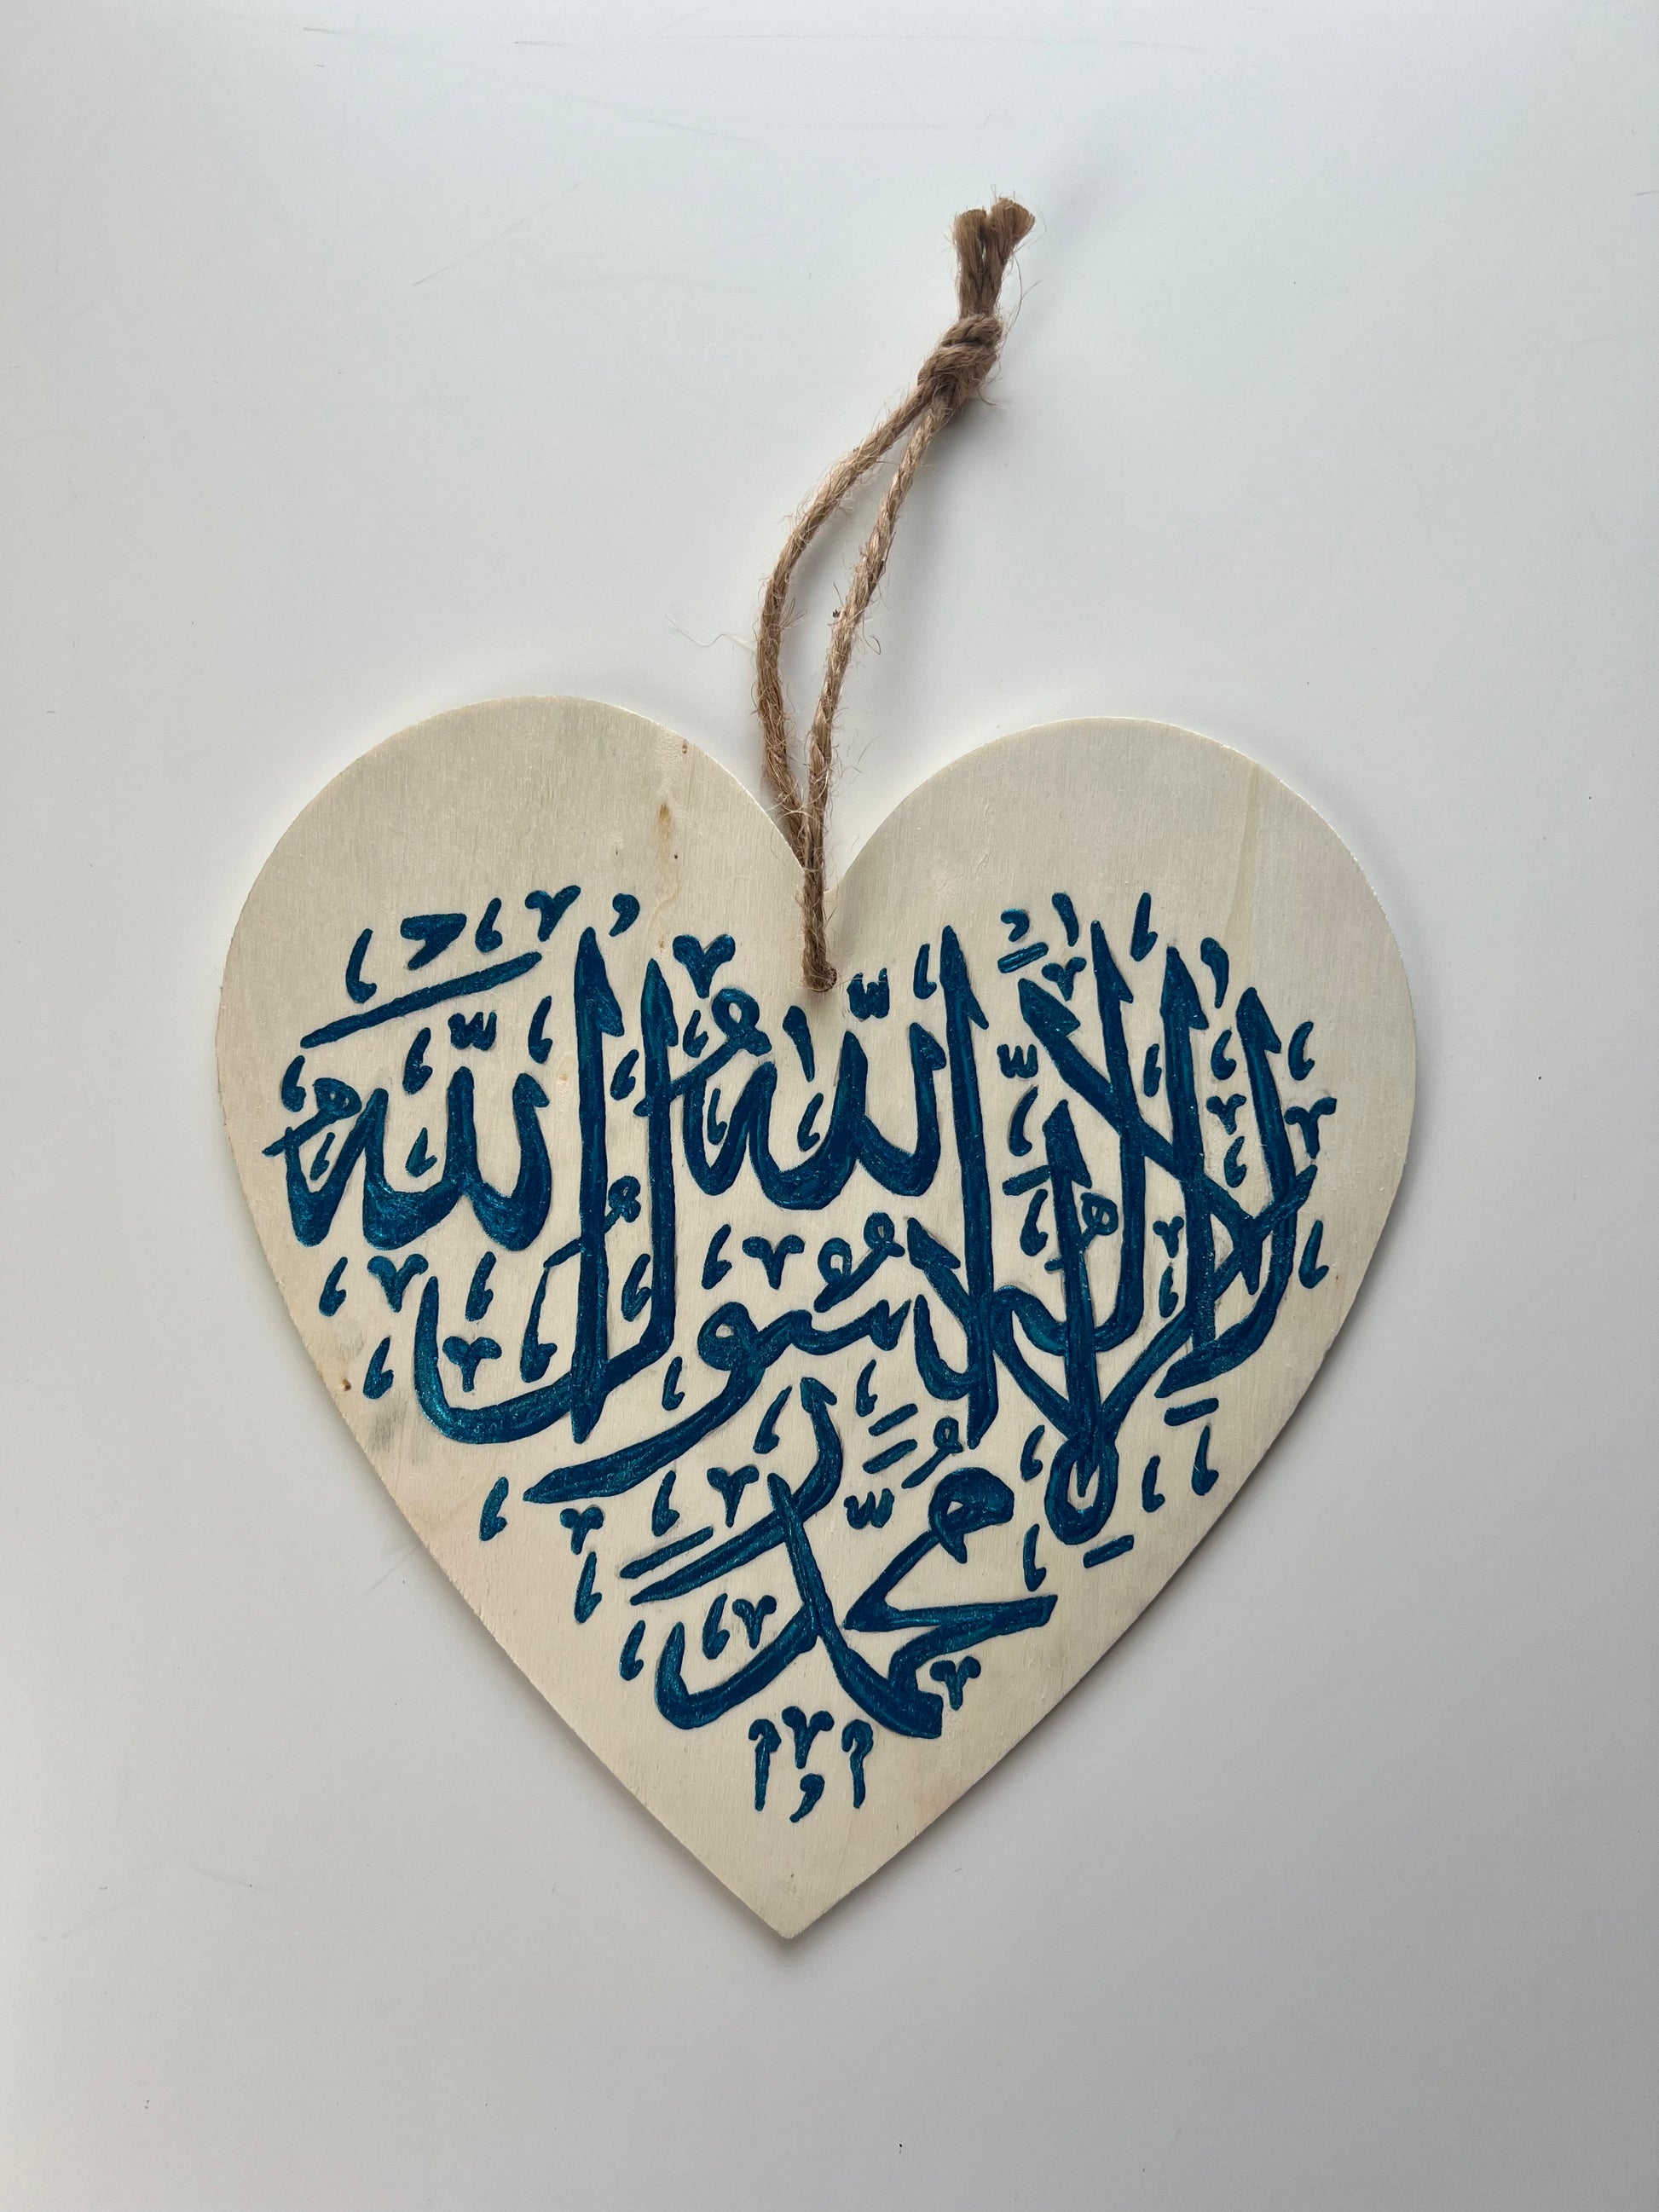 لا إله إلا الله
محمد رسول الله